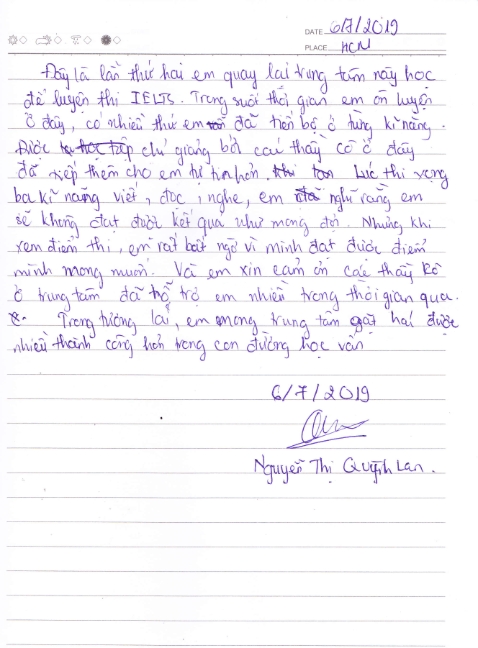 DATE 6/7/2019
PLACE HCM
Đây là lần thứ hai em quay lại trung tâm này học
để luyện thi IELTS. Trong suốt thời gian em ôn luyện
ở đây, có nhiều thứ em đã tiến bộ ở từng kĩ năng.
Được chỉ giảng bởi các thầy cô ở đây
đã tiếp thêm cho em tự tin hơn. Lúc thi vọng
ba kĩ năng viết, đọc, nghe, em nghĩ rằng em
sẽ không đạt được kết quả như mong đợi. Nhưng khi
xem điểm thi, em rất bất ngờ vì mình đạt được điểm
mình mong muốn. Và em xin cảm ơn các thầy cô
ở trung tâm đã hỗ trợ em nhiều trong thời gian qua.
Trong tương lai, em mong trung tâm gặt hái được
nhiều thành công hơn trong con đường học vấn
6/7/2019
Nguyễn Thị Quỳnh Lan.